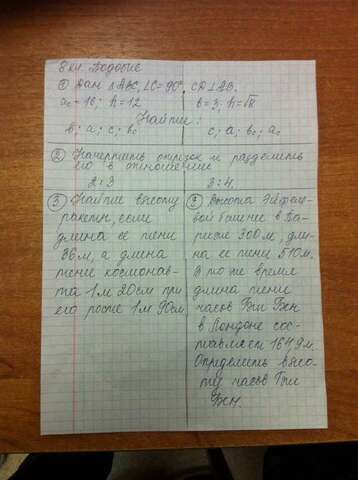 8 кл. Подобие
① Дан △ABC, ∠C=90°, CD⊥AB.
a_c=16; h=12
b=3; h=√8
Найти:
b; a; c; b_c
c; a; b_c; a_c
② Начертить отрезок и разделить
его в отношении
2:3
3:4.
③ Найти высоту
ракеты, если
длина её тени
36м, а длина
тени космонав-
та 1м 20см при
его росте 1м 90см.
③ Высота Эйфеле-
вой башни в Па-
риже 300м, дли-
на её тени 510м.
В то же время
длина тени
часов Биг Бэн
в Лондоне сос-
тавляет 164,9м.
Определить высо-
ту часов Биг
Бэн.